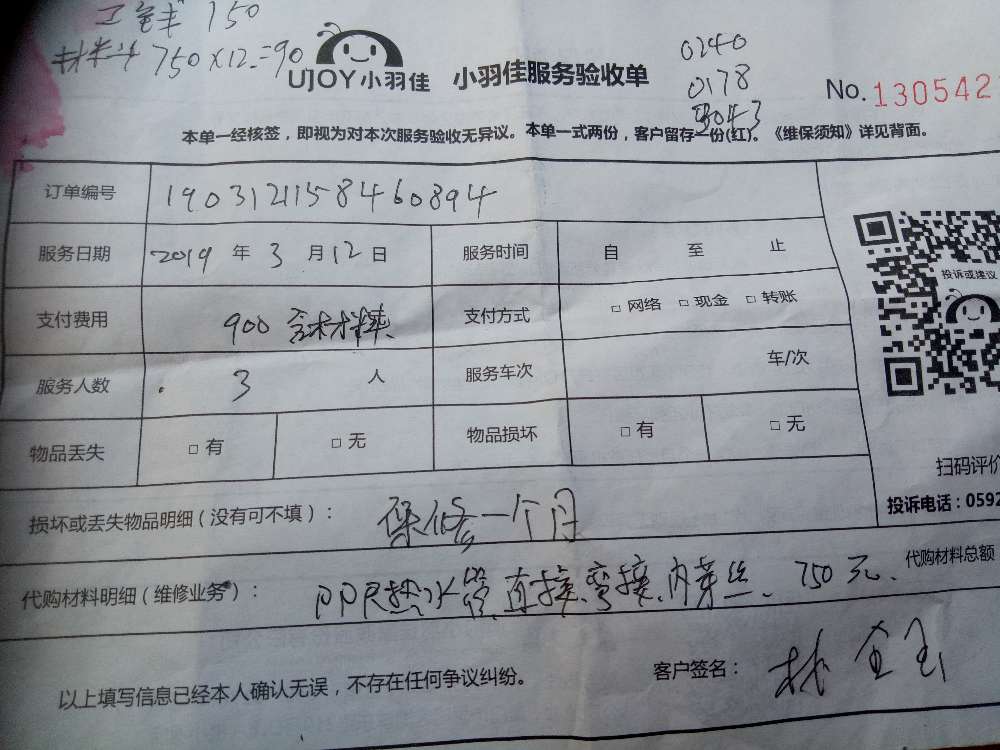 工钱 150
材料 750×12=90
0240
0178
3043
UJOY小羽佳
小羽佳服务验收单
No.130542
本单一经核签，即视为对本次服务验收无异议。本单一式两份，客户留存一份(红)。《维保须知》详见背面。
订单编号 19031211584608​94
服务日期 2019 年 3 月 12 日 服务时间 自 至 止
支付费用 900 含材料 支付方式 □ 网络 □ 现金 □ 转账
服务人数 3 人 服务车次 车/次
物品丢失 □ 有 □ 无 物品损坏 □ 有 □ 无
投诉或建议
扫码评价
投诉电话：0592
损坏或丢失物品明细（没有可不填）： 保修一个月
代购材料明细（维修业务）： PPR热水管、直接、弯接、内芽丝、750元、 代购材料总额
以上填写信息已经本人确认无误，不存在任何争议纠纷。 客户签名：